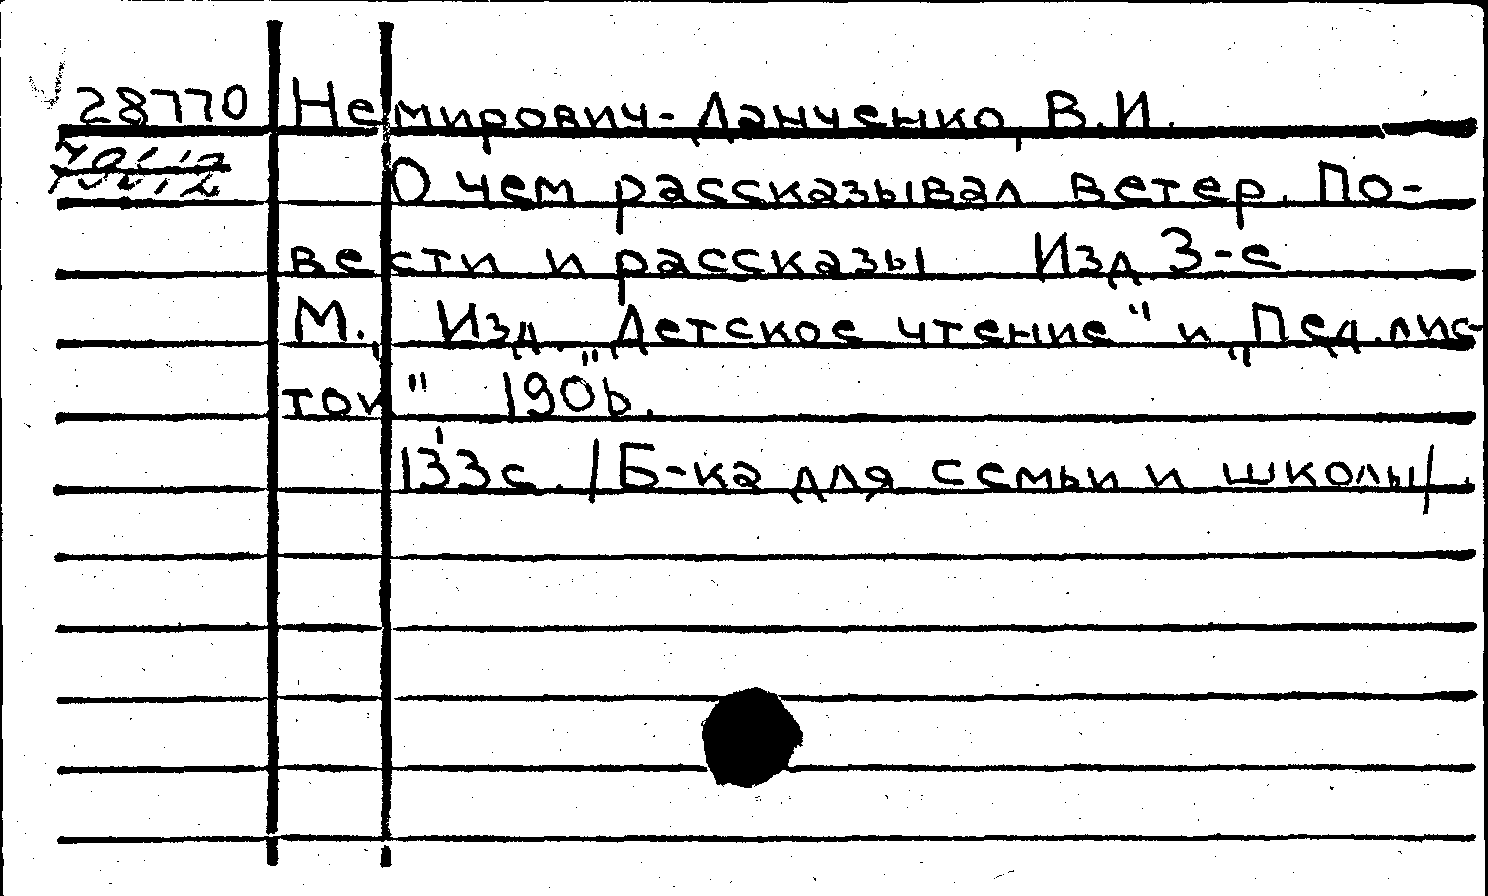 28770 Немирович-Данченко, В.И.
О чем рассказывал ветер. По-
вести и рассказы Изд 3-е
М., Изд. „Детское чтение" и „Пед.лис-
ток" 1906.
133с. /Б-ка для семьи и школы/.